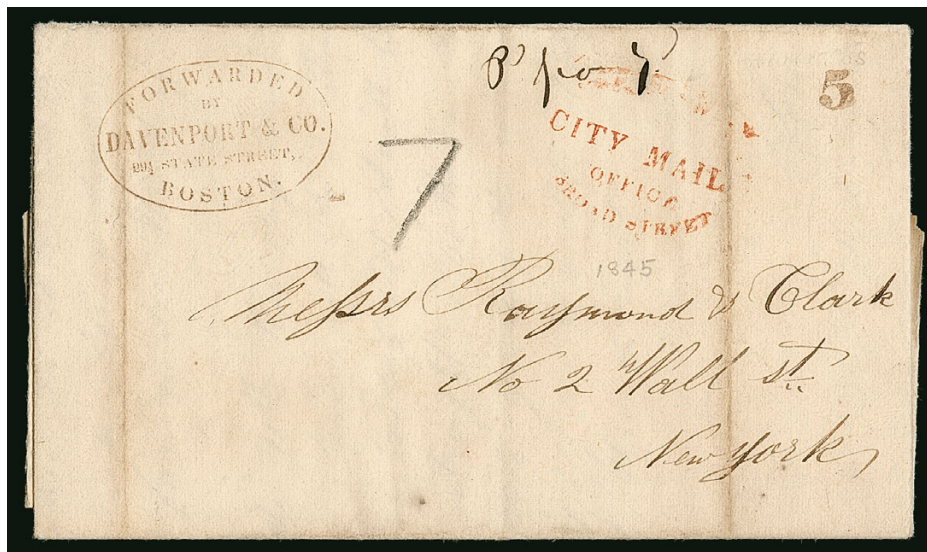 FORWARDED
BY
DAVENPORT & CO.
STATE STREET,
BOSTON.
CITY MAIL
OFFICE
BROAD STREET
5
7
1845
Messrs Raymond & Clark
No 2 Wall st.
New York